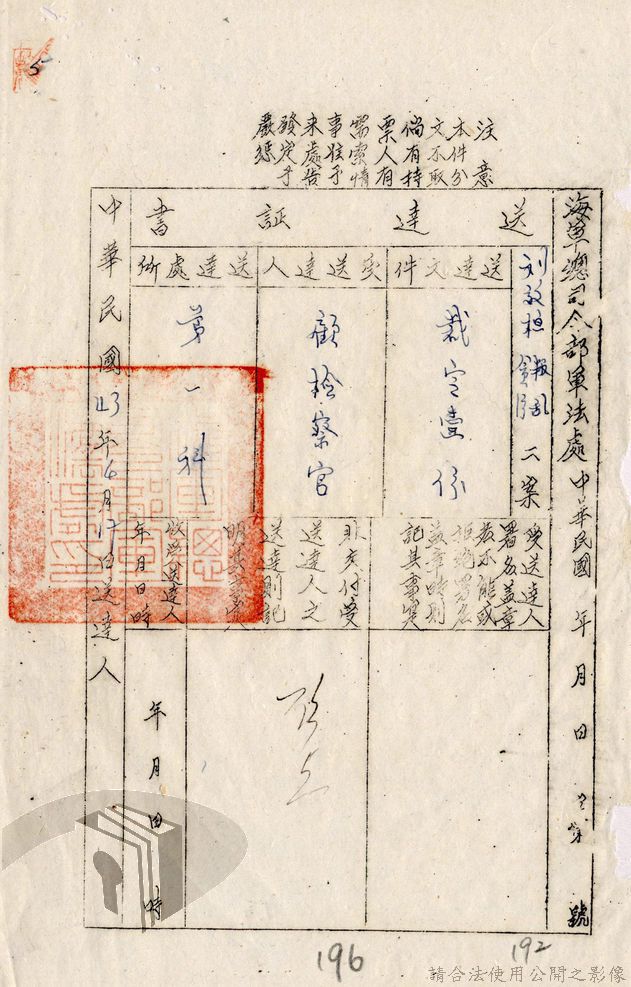 5
注意
本件分
文不取
倘有持
票人有
需索情
事准予
来處告
發定予
嚴懲
海軍總司令部軍法處中華民國 年 月 日 字第 號
送達証書
二案
送達文件
裁定壹份
受送達人
顧檢察官
送達處所
第一科
受送達人
署名盖章
若不能或
拒絕署名
盖章時則
記其事實
非交付受
送達人之
送達則記
明其事實
送達人
年月日時
年 月 日 時
中華民國43年6月17日送達人
196
192
請合法使用公開之影像